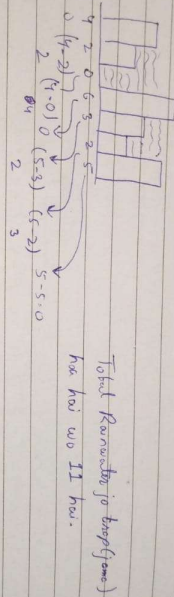 4 2 0 6 3 2 5
0 (4-2) (4-0) 0 (5-3) (5-2) 5-5=0
2 4 2 3
Total Rainwater jo trap(jama)
hai wo 11 hai.